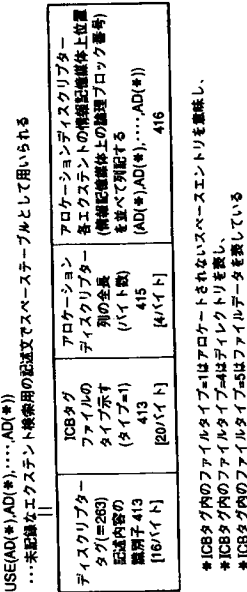 USE(AD(*),AD(*),・・・・,AD(*))
・・・未記録なエクステント検索用の記述文でスペーステーブルとして用いられる
ディスクリプター
タグ(=263)
記述内容の
識別子 413
[16バイト]
ICBタグ
ファイルの
タイプ示す
(タイプ=1)
413
[20バイト]
アロケーション
ディスクリプター
列の全長
(バイト数)
415
[4バイト]
アロケーションディスクリプター
各エクステントの情報記憶媒体上位置
(情報記憶媒体上の論理ブロック番号)
を並べて列記する
(AD(*),AD(*),・・・・,AD(*))
416
*ICBタグ内のファイルタイプ=1はアロケートされないスペースエントリを意味し、
*ICBタグ内のファイルタイプ=4はディレクトリを表し、
*ICBタグ内のファイルタイプ=5はファイルデータを表している